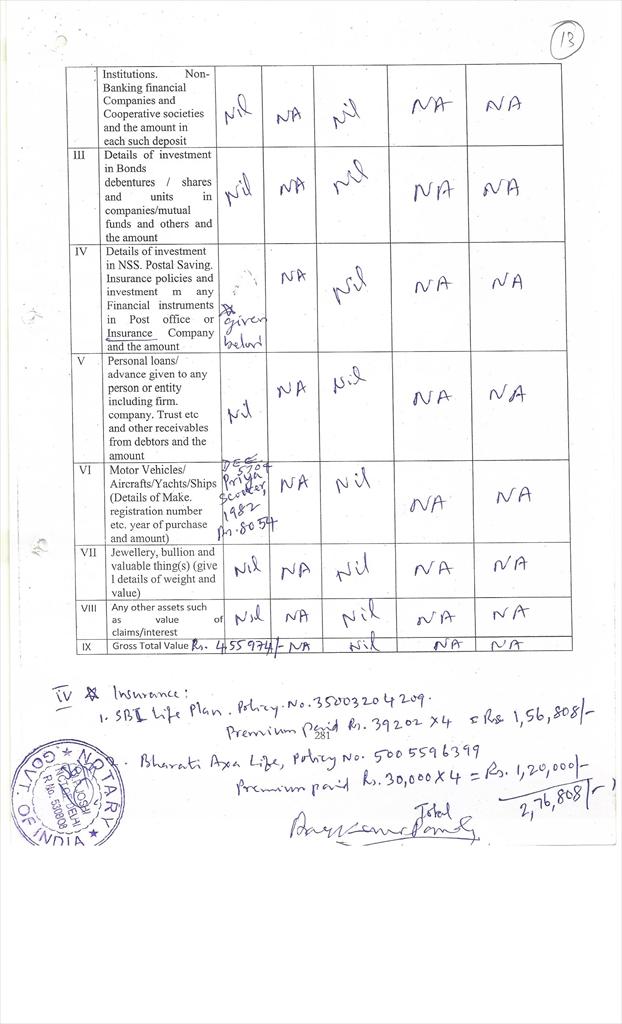 13
Institutions. Non-
Banking financial
Companies and
Cooperative societies
and the amount in
each such deposit
Nil NA Nil NA NA
III Details of investment
in Bonds
debentures / shares
and units in
companies/mutual
funds and others and
the amount
Nil NA Nil NA NA
IV Details of investment
in NSS. Postal Saving.
Insurance policies and
investment m any
Financial instruments
in Post office or
Insurance Company
and the amount
given
below
NA Nil NA NA
V Personal loans/
advance given to any
person or entity
including firm.
company. Trust etc
and other receivables
from debtors and the
amount
Nil NA Nil NA NA
VI Motor Vehicles/
Aircrafts/Yachts/Ships
(Details of Make.
registration number
etc. year of purchase
and amount)
Priya
Scooter,
1982
Rs. 8054
NA Nil NA NA
VII Jewellery, bullion and
valuable thing(s) (give
l details of weight and
value)
Nil NA Nil NA NA
VIII Any other assets such
as value of
claims/interest
Nil NA Nil NA NA
IX Gross Total Value Rs. 455974/- NA Nil NA NA
IV Insurance:
1. SBI Life Plan. Policy No. 35003204209.
Premium paid Rs. 39202 X 4 = Rs 1,56,808/-
281
Bharati Axa Life, Policy No. 5005596399
Premium paid Rs. 30,000 X 4 = Rs. 1,20,000/-
Total 2,76,808/-
NOTARY
JOSHI
DELHI
GOVT. OF INDIA